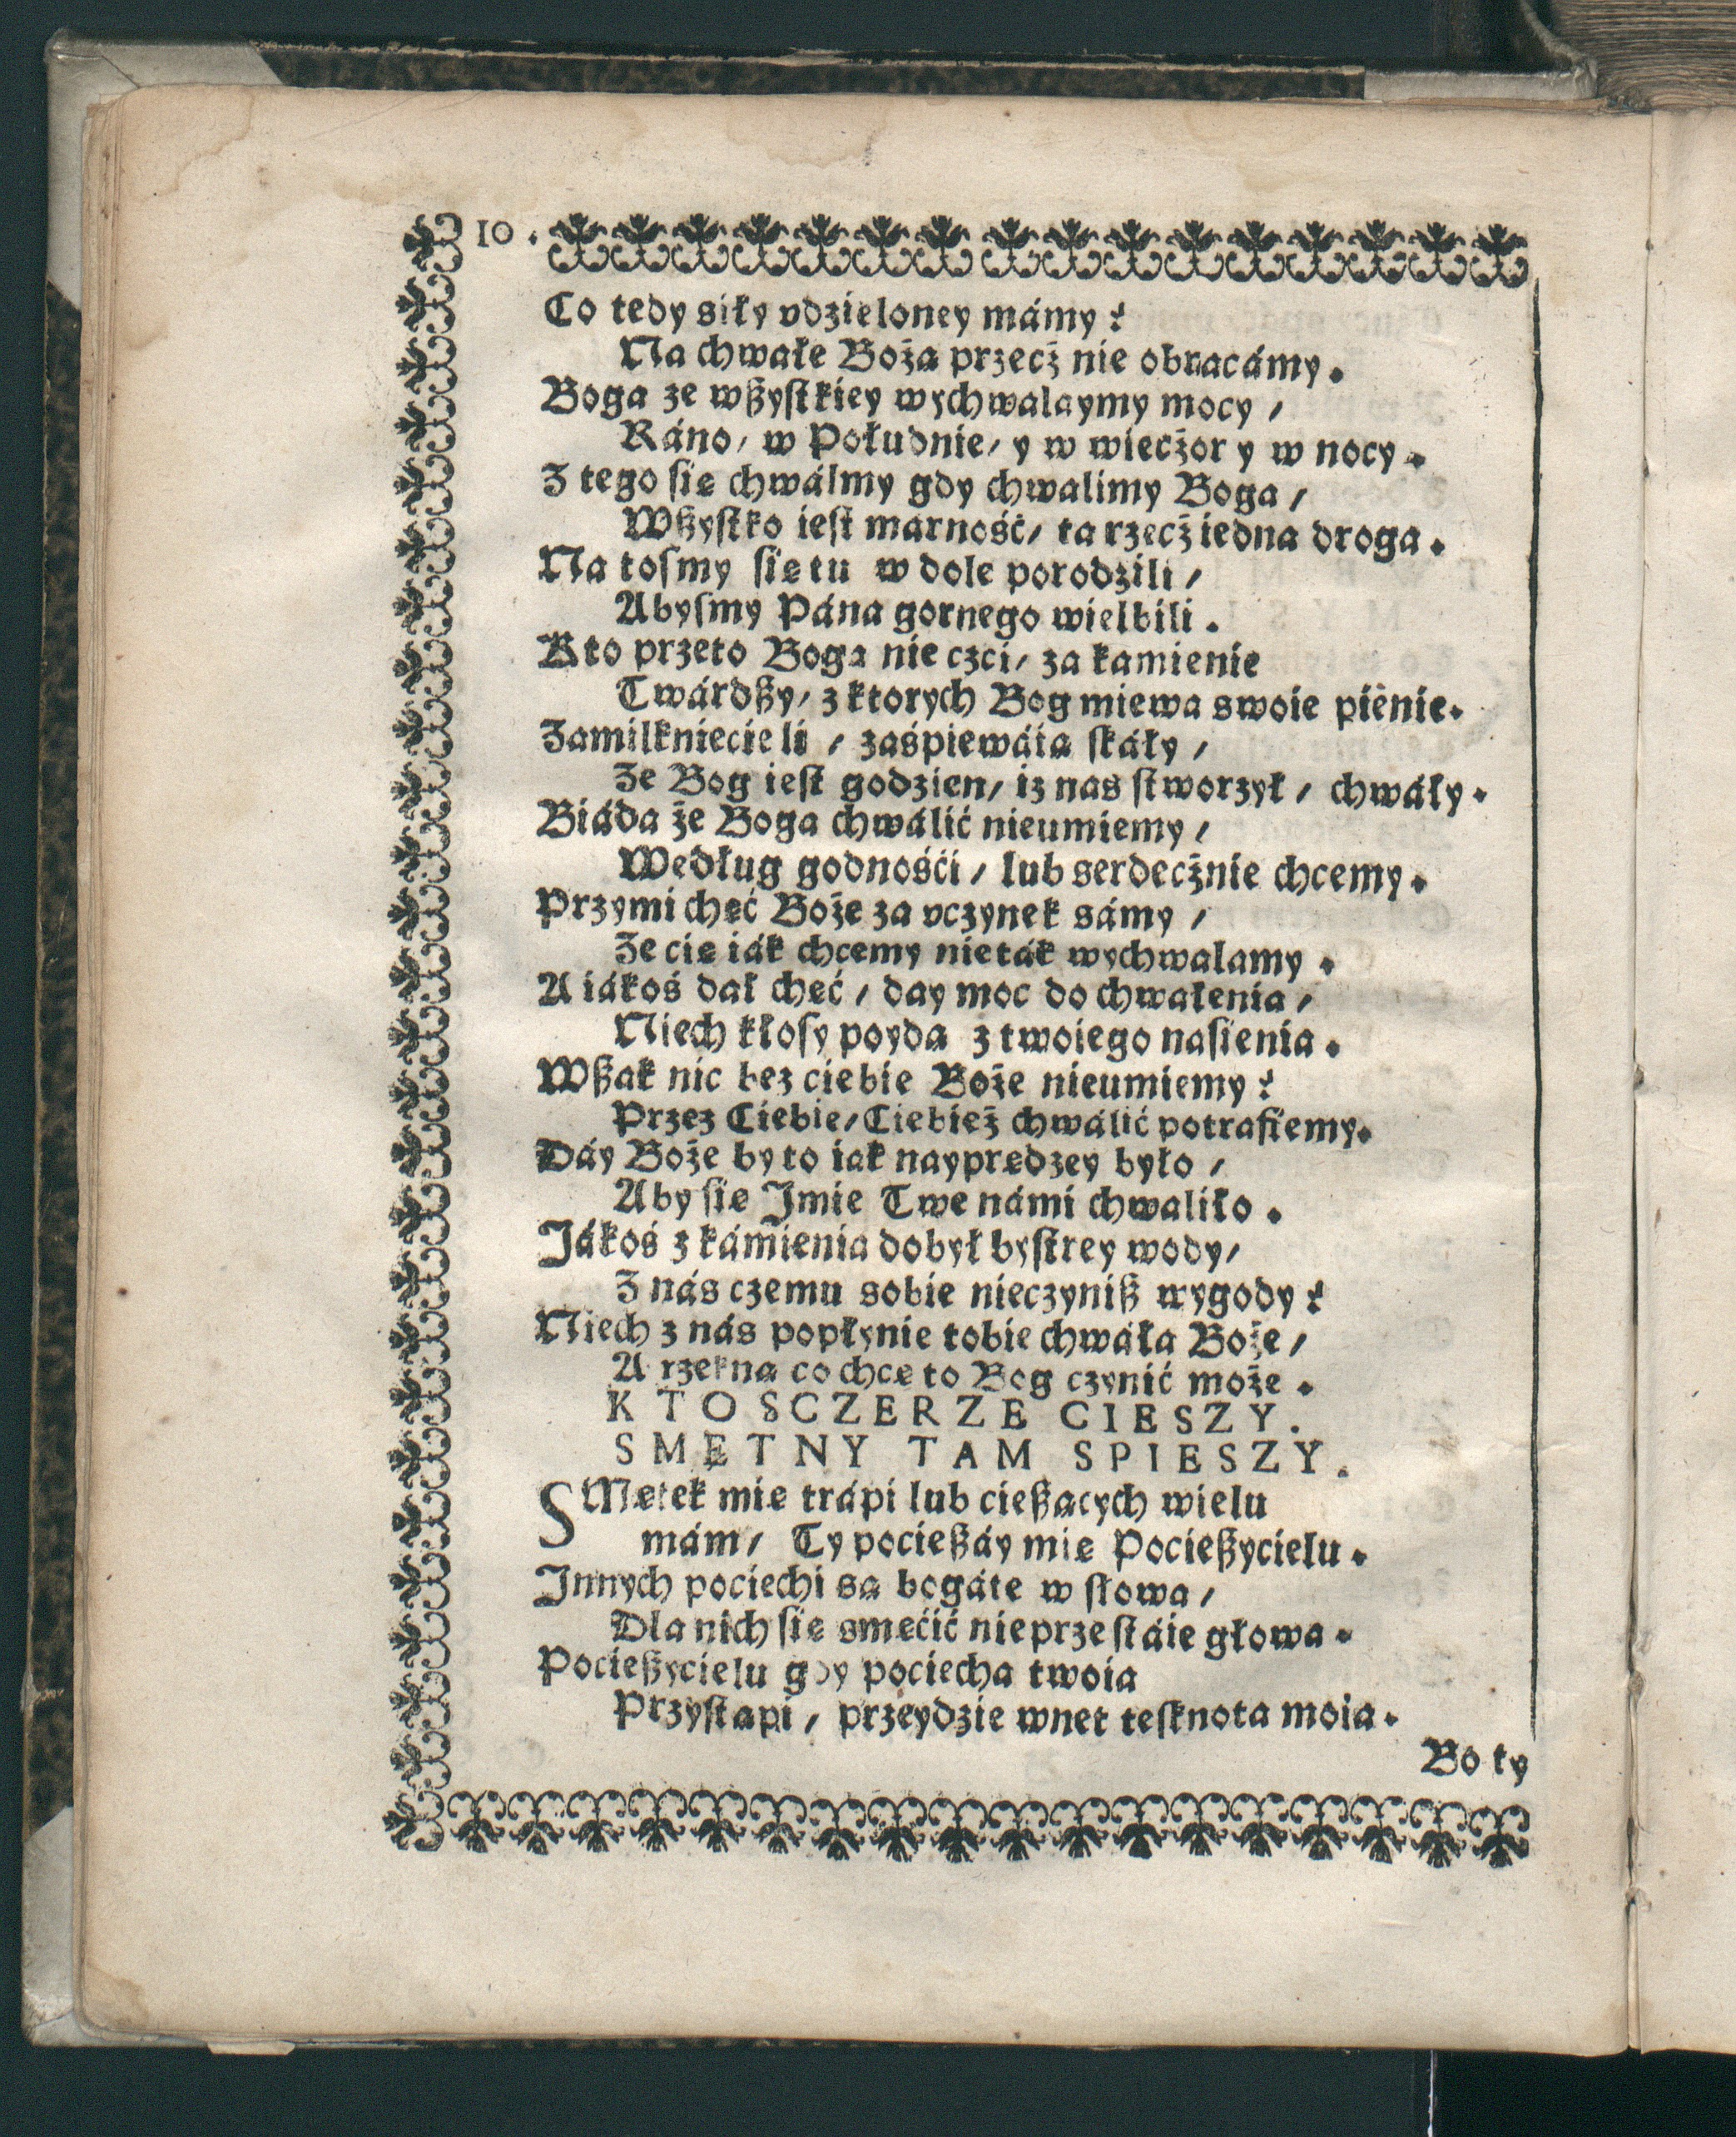 10.
Co tedy siły vdzieloney mámy?
Na chwałę Bożą przecż nie obracámy.
Boga ze wßyſtkiey wychwalaymy mocy /
Ráno / w Południe / y w wiecżor y w nocy.
Z tego ſię chwálmy gdy chwalimy Boga /
Wßyſtko ieſt marność / ta rzecż iedna droga.
Na toſmy ſię tu w dole porodzili /
Abyſmy Pána gornego wielbili.
Kto przeto Boga nie czci / za kamienie
Twárdßy / z ktorych Bog miewa swoie pienie.
Zamilkniecie li / zaśpiewáią ſkáły /
Ze Bog ieſt godzien / iz nas ſtworzył / chwáły.
Biáda że Boga chwálić nieumiemy /
Według godnośći / lub serdecżnie chcemy.
Przymi chęć Boże za vczynek sámy /
Ze cię iák chcemy nieták wychwalamy.
A iákoś dał chęć / day moc do chwałenia /
Niech kłosy poydą z twoiego naſienia.
Wßak nic bez ciebie Boże nieumiemy?
Przez Ciebie / Ciebież chwálić potrafiemy.
Dáy Boże by to iak nayprędzey było /
Aby ſię Jmie Twe námi chwaliło.
Jákoś z kámienia dobył byſtrey wody /
Z nás czemu sobie nieczyniß wygody?
Niech z nás popłynie tobie chwáła Boże /
A rzekną co chce to Bog czynić może.
KTO SCZERZE CIESZY.
SMĘTNY TAM SPIESZY.
SMętek mię trápi lub cießących wielu
mám / Ty pocießáy mię Pocießycielu.
Jnnych pociechi są bogáte w słowa /
Dla nich ſię smęćić nieprzeſtáie głowa.
Pocießycielu gdy pociecha twoia
Przyſtąpi / przeydzie wnet teſknota moia.
Bo ty